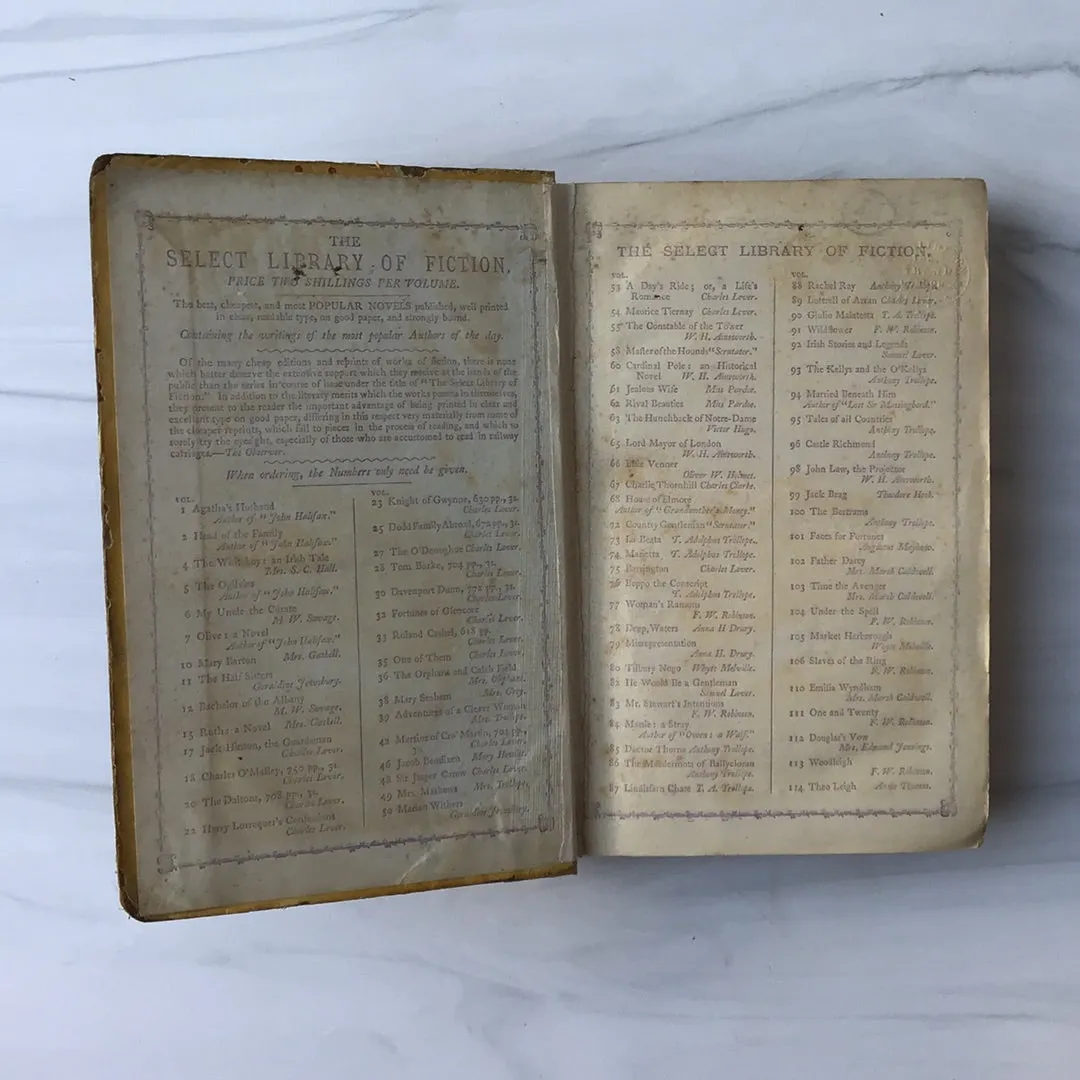 THE
SELECT LIBRARY OF FICTION.
PRICE TWO SHILLINGS PER VOLUME.
The best, cheapest, and most POPULAR NOVELS published, well printed
in clear, readable type, on good paper, and strongly bound.
Containing the writings of the most popular Authors of the day.
Of the many cheap editions and reprints of works of fiction, there is none
which better deserve the extensive support which they receive at the hands of the
public than the series in course of issue under the title of "The Select Library of
Fiction." In addition to the literary merit which the works possess in themselves,
they present to the reader the important advantage of being printed in clear and
excellent type on good paper, differing in this respect very materially from some of
the cheaper reprints, which fall to pieces in the process of reading, and which so
sorely try the eyesight, especially of those who are accustomed to read in railway
carriages.—The Observer.
When ordering, the Numbers only need be given.
VOL.
1 Agatha's Husband
Author of "John Halifax."
2 Head of the Family
Author of "John Halifax."
4 The Whiteboy: an Irish Tale
Mrs. S. C. Hall.
5 The Ogilvies
Author of "John Halifax."
6 My Uncle the Curate
M. W. Savage.
7 Olive: a Novel
Author of "John Halifax."
10 Mary Barton Mrs. Gaskell.
11 The Half Sisters
Geraldine Jewsbury.
12 Bachelor of the Albany
M. W. Savage.
15 Ruth: a Novel Mrs. Gaskell.
17 Jack Hinton, the Guardsman
Charles Lever.
18 Charles O'Malley, 750 pp., 3s.
Charles Lever.
20 The Daltons, 708 pp., 3s.
Charles Lever.
22 Harry Lorrequer's Confessions
Charles Lever.
VOL.
23 Knight of Gwynne, 630 pp., 3s.
Charles Lever.
25 Dodd Family Abroad, 672 pp., 3s.
Charles Lever.
27 The O'Donoghue Charles Lever.
28 Tom Burke, 704 pp., 3s.
Charles Lever.
30 Davenport Dunn, 772 pp., 3s.
Charles Lever.
32 Fortunes of Glencore
Charles Lever.
33 Roland Cashel, 618 pp.
Charles Lever.
35 One of Them Charles Lever.
36 The Orphans and Caleb Field
Mrs. Oliphant.
38 Mary Seaham Mrs. Grey.
39 Adventures of a Clever Woman
Mrs. Trollope.
42 Martins of Cro' Martin, 702 pp.,
3s. Charles Lever.
46 Jacob Bendixen Mary Howitt.
48 Sir Jasper Carew Charles Lever.
49 Mrs. Mathews Mrs. Trollope.
50 Marian Withers
Geraldine Jewsbury.
THE SELECT LIBRARY OF FICTION.
VOL.
53 A Day's Ride; or, a Life's
Romance Charles Lever.
54 Maurice Tiernay Charles Lever.
55 The Constable of the Tower
W. H. Ainsworth.
58 Master of the Hounds "Scrutator."
60 Cardinal Pole: an Historical
Novel W. H. Ainsworth.
61 Jealous Wife Miss Pardoe.
62 Rival Beauties Miss Pardoe.
63 The Hunchback of Notre-Dame
Victor Hugo.
65 Lord Mayor of London
W. H. Ainsworth.
66 Elsie Venner
Oliver W. Holmes.
67 Charlie Thornhill Charles Clarke.
68 House of Elmore
Author of "Grandmother's Money."
72 Country Gentleman "Scrutator."
73 La Beata T. Adolphus Trollope.
74 Marietta T. Adolphus Trollope.
75 Barrington Charles Lever.
76 Beppo the Conscript
T. Adolphus Trollope.
77 Woman's Ransom
F. W. Robinson.
78 Deep Waters Anna H Drury.
79 Misrepresentation
Anna H. Drury.
80 Tilbury Nogo Whyte Melville.
82 He Would Be a Gentleman
Samuel Lover.
83 Mr. Stewart's Intentions
F. W. Robinson.
84 Mattie: a Stray
Author of "Owen: a Waif."
85 Doctor Thorne Anthony Trollope.
86 The Macdermots of Ballycloran
Anthony Trollope.
87 Lindisfarn Chase T. A. Trollope.
VOL.
88 Rachel Ray Anthony Trollope.
89 Luttrell of Arran Charles Lever.
90 Giulio Malatesta T. A. Trollope.
91 Wildflower F. W. Robinson.
92 Irish Stories and Legends
Samuel Lover.
93 The Kellys and the O'Kellys
Anthony Trollope.
94 Married Beneath Him
Author of "Lost Sir Massingberd."
95 Tales of all Countries
Anthony Trollope.
96 Castle Richmond
Anthony Trollope.
98 John Law, the Projector
W. H. Ainsworth.
99 Jack Brag Theodore Hook.
100 The Bertrams
Anthony Trollope.
101 Faces for Fortunes
Augustus Mayhew.
102 Father Darcy
Mrs. Marsh Caldwell.
103 Time the Avenger
Mrs. Marsh Caldwell.
104 Under the Spell
F. W. Robinson.
105 Market Harborough
Whyte Melville.
106 Slaves of the Ring
F. W. Robinson.
110 Emilia Wyndham
Mrs. Marsh Caldwell.
111 One and Twenty
F. W. Robinson.
112 Douglas's Vow
Mrs. Edmund Jennings.
113 Woodleigh
F. W. Robinson.
114 Theo Leigh Annie Thomas.